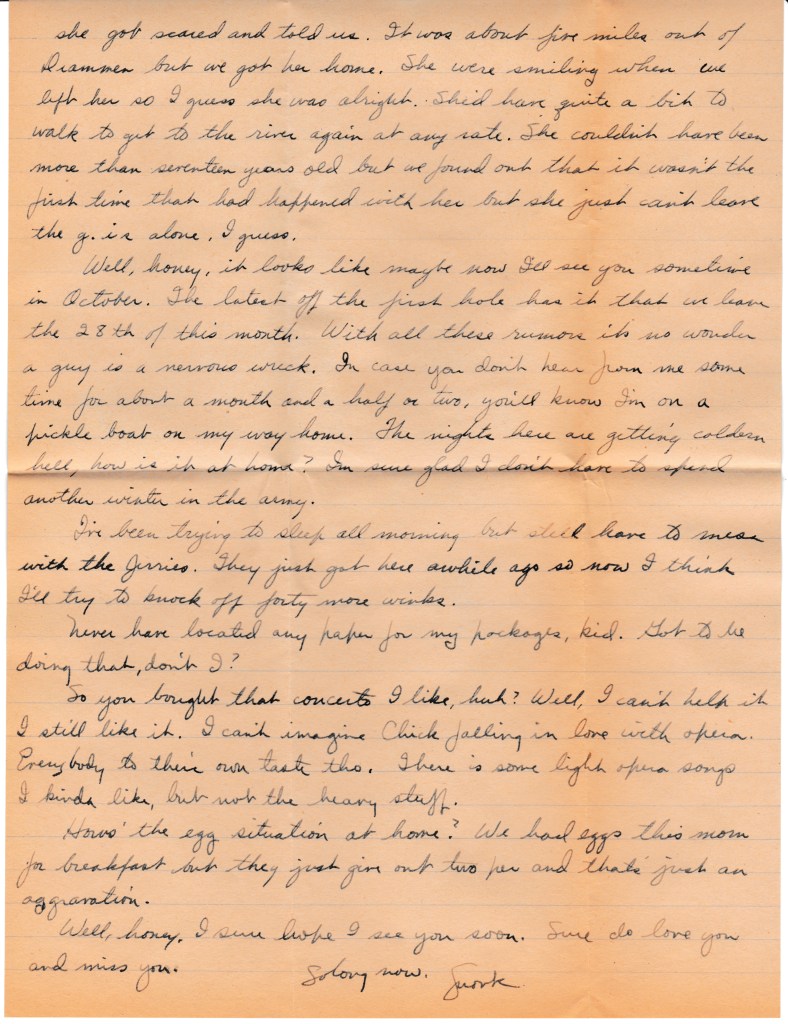 she got scared and told us. It was about five miles out of
Drammen but we got her home. She were smiling when we
left her so I guess she was alright. She'd have quite a bit to
walk to get to the river again at any rate. She couldn't have been
more than seventeen years old but we found out that it wasn't the
first time that had happened with her but she just can't leave
the g. i's alone, I guess.
Well, honey, it looks like maybe now I'll see you sometime
in October. The latest off the first hole has it that we leave
the 28th of this month. With all these rumors it's no wonder
a guy is a nervous wreck. In case you don't hear from me some
time for about a month and a half or two, you'll know I'm on a
pickle boat on my way home. The nights here are getting coldern
hell, how is it at home? I'm sure glad I don't have to spend
another winter in the army.
I've been trying to sleep all morning but still have to mess
with the Jerries. They just got here awhile ago so now I think
I'll try to knock off forty more winks.
Never have located any paper for my packages, kid. Got to be
doing that, don't I?
So you bought that concerto I like, huh? Well, I can't help it
I still like it. I can't imagine Chick falling in love with opera.
Everybody to their own taste tho. There is some light opera songs
I kinda like, but not the heavy stuff.
Hows' the egg situation at home? We had eggs this morn
for breakfast but they just give out two per and that's just an
aggravation.
Well, honey, I sure hope I see you soon. Sure do love you
and miss you.
So long now.